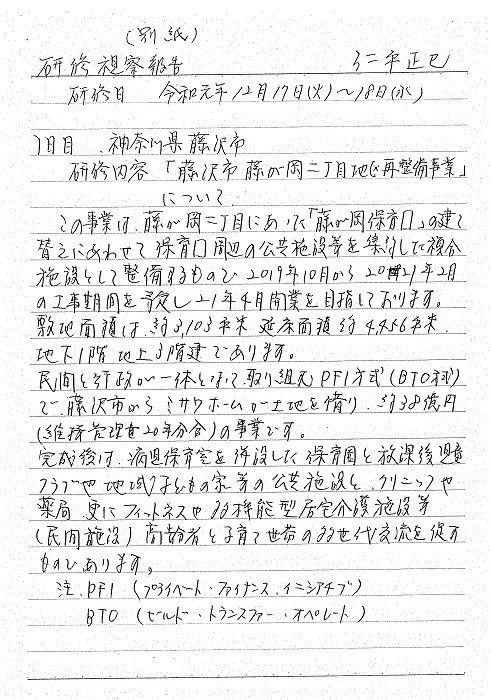 (別紙)
研修視察報告 仁平正巳
研修日 令和元年12月17日(火)～18日(水)
1日目 神奈川県藤沢市
研修内容 「藤沢市藤が岡二丁目地区再整備事業」
について
この事業は、藤が岡二丁目にあった「藤が岡保育園」の建て
替えにあわせて保育園周辺の公共施設等を集約した複合
施設として整備するもので2019年10月から2021年2月
の工事期間を予定し21年4月開業を目指しております。
敷地面積は、約3,103平米 延床面積約4,456平米、
地下1階 地上3階建であります。
民間と行政が一体となって取り組んだPFI方式(BTO方式)
で、藤沢市からミサワホームが土地を借り、約38億円
(維持管理費20年分含)の事業です。
完成後は、病児保育室を併設した保育園と放課後児童
クラブや地域子どもの家等の公共施設と、クリニックや
薬局、更にフィットネスや多機能型居宅介護施設等
(民間施設) 高齢者と子育て世帯の多世代交流を促す
ものであります。
注、PFI (プライベート・ファイナンス・イニシアチブ)
BTO (ビルド・トランスファー・オペレート)